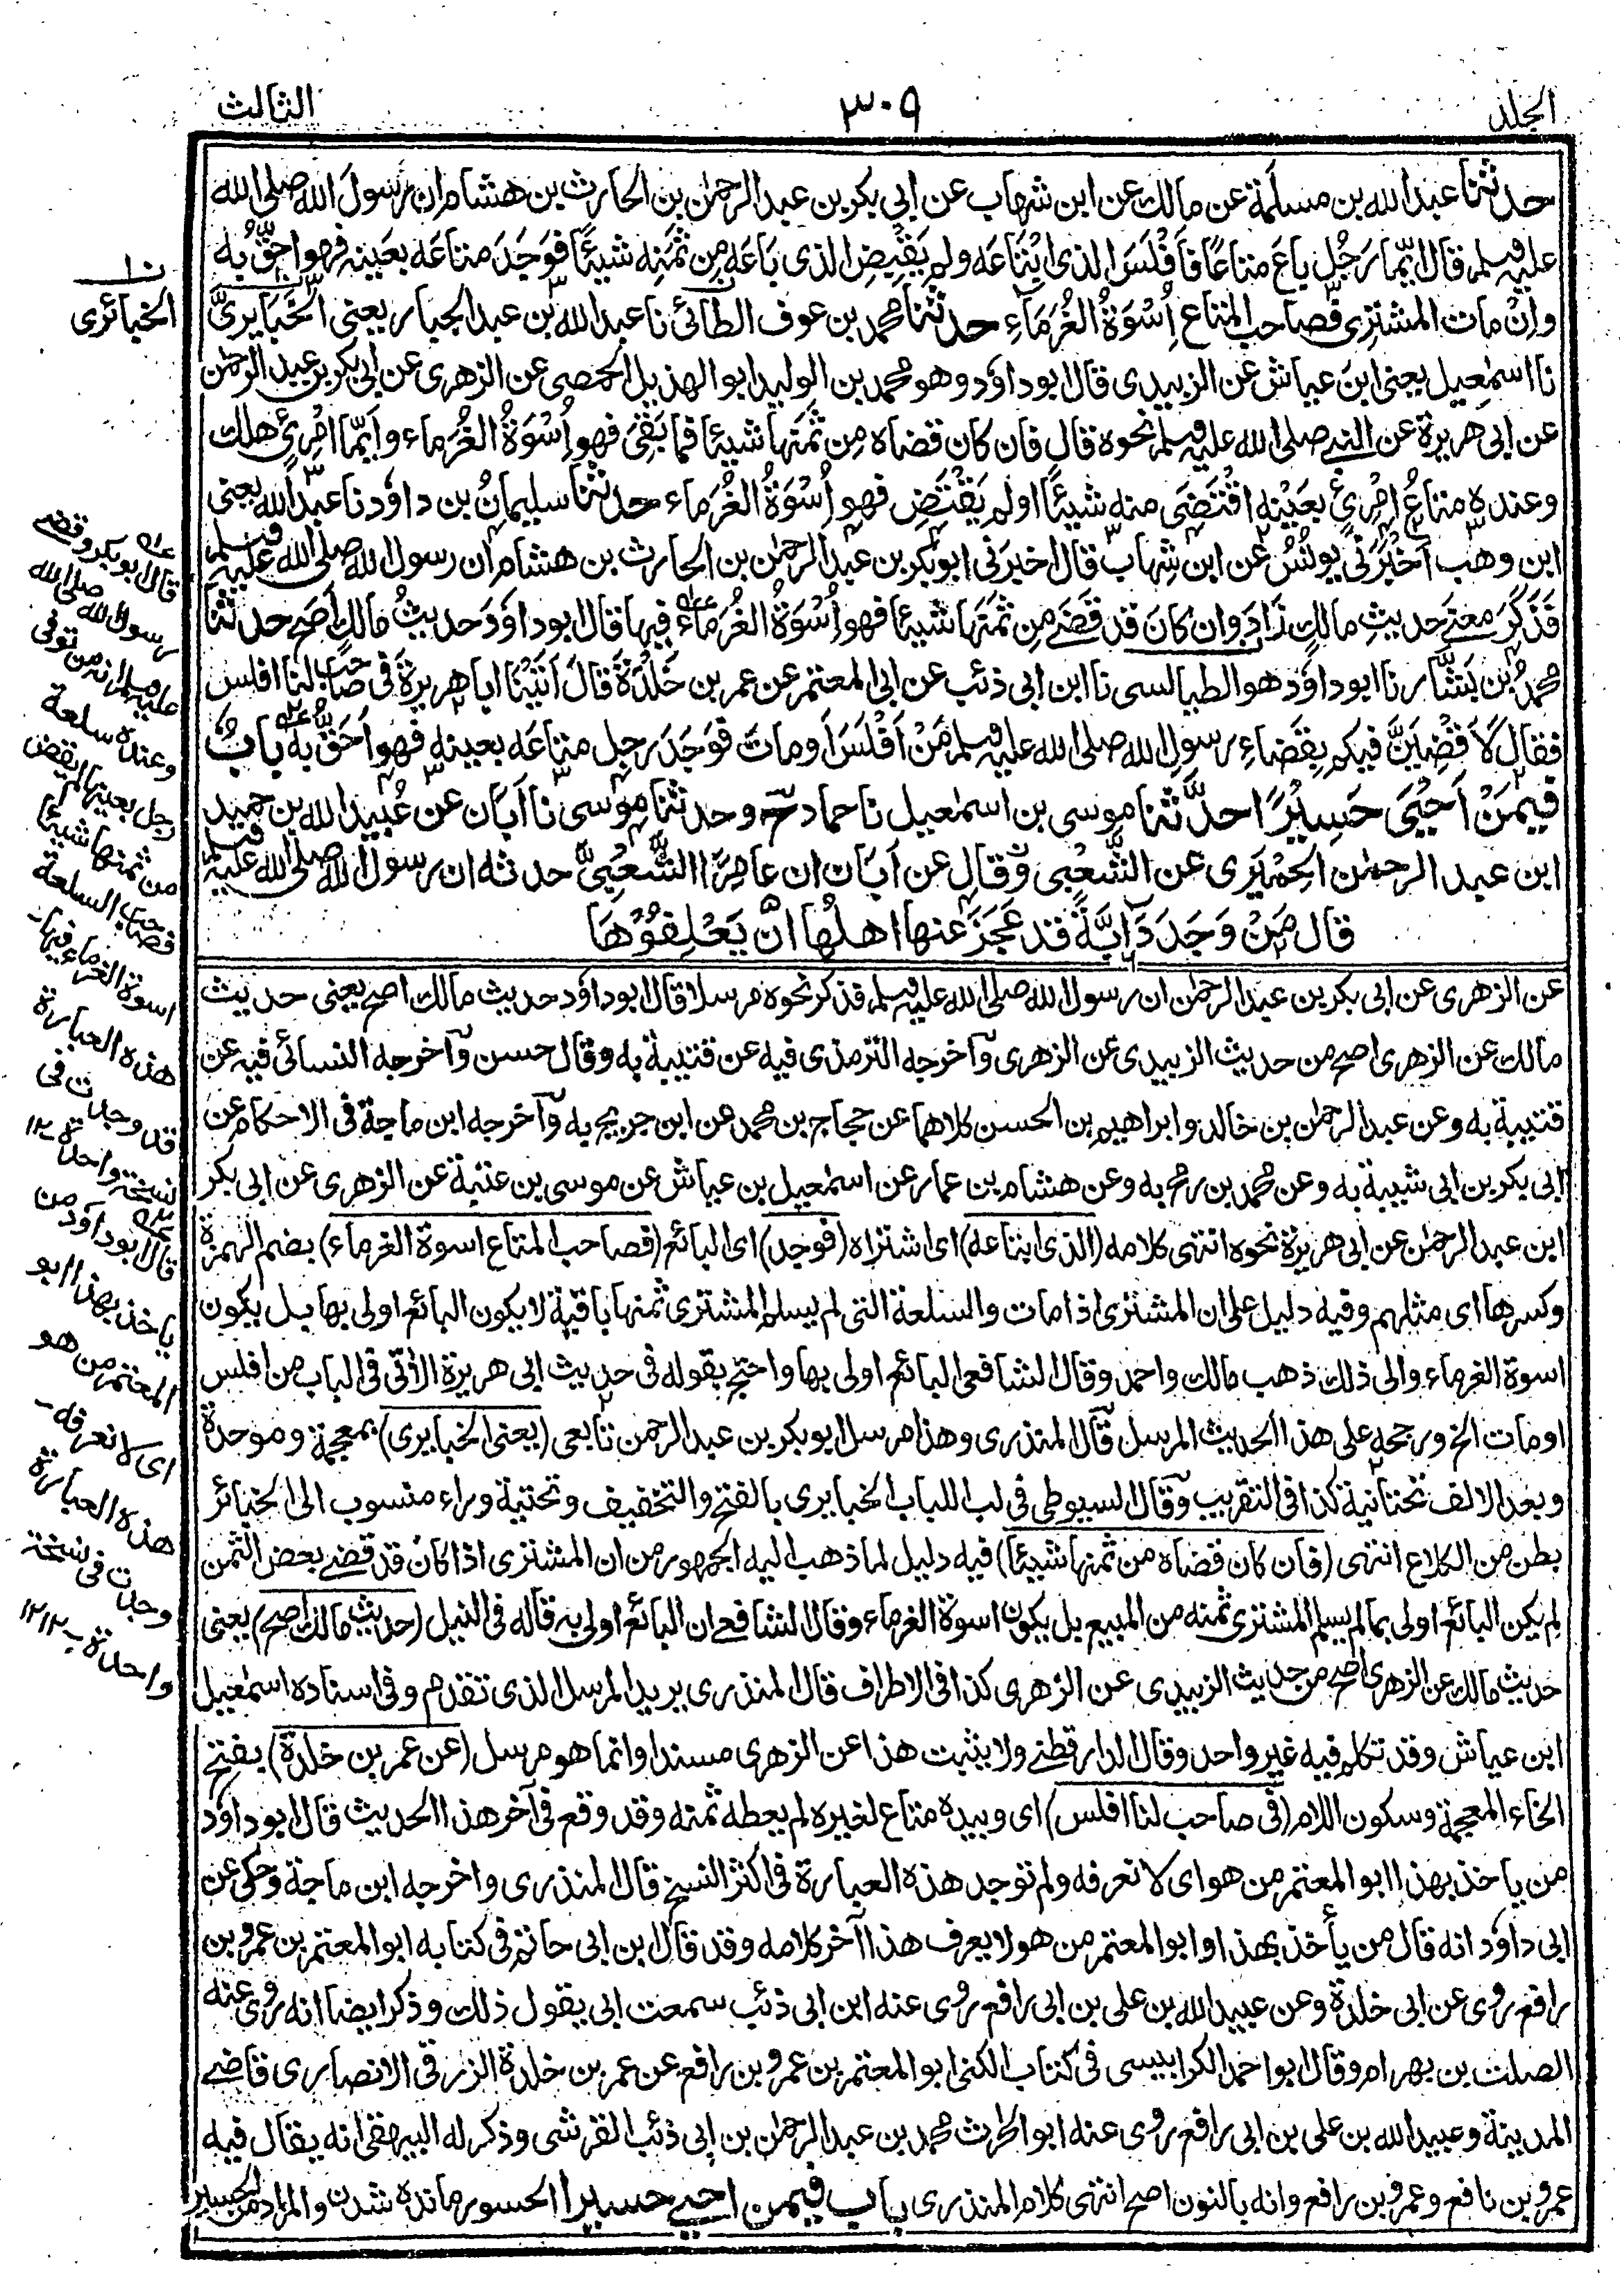 الجلد
٣٠٩
الثالث
حدثنا عبد الله بن مسلمة عن مالك عن ابن شهاب عن ابي بكر بن عبد الرحمٰن بن الحارث بن هشام ان رسول الله صلى الله
عليه وسلم قال ايّما رَجُل باعَ متاعًا فَاَفْلَسَ الذى ابْتَاعَه ولم يَقْبِضِ الذى بَاعَه مِن ثَمَنِه شيئًا فوَجَدَ متاعَه بعَينِه فهو احقُّ به
واِنْ مات المشترى فصاحب المتاع اُسْوَةُ الغُرَمَاءِ حدثنا محمد بن عوف الطائى نا عبد الله بن عبد الجبار يعنى الخَبَايرىَّ
نا اسمٰعيل يعنى ابنَ عياش عن الزبيدى قال ابو داؤد وهو محمد بن الوليد ابو الهذيل الحمصى عن الزهرى عن ابى بكر بن عبد الرحمٰن
عن ابى هريرة عن النبى صلى الله عليه وسلم نحوه قال فان كان قضاه مِن ثَمَنِها شيئا فما بَقِىَ فهو اُسْوَةُ الغُرَماء وايّما امْرِئٍ هلك
وعنده متاعُ امْرِئٍ بعَيْنِه اقْتَضَى منه شيئًا اولم يَقْتَضِ فهو اُسْوَةُ الغُرَمَاء حدثنا سليمانُ بن داؤد نا عبد الله يعنى
ابن وهب اَخْبَرَنى يونُسُ عن ابن شِهاب قال اخبرنى ابو بكر بن عبد الرحمٰن بن الحارث بن هشام ان رسول الله صلى الله عليه وسلم
فَذَكَرَ معنى حديثِ مالكٍ زَادَ وان كانَ قد قَضٰے مِن ثَمَنِهَا شيئا فهو اُسْوَةُ الغُرَمَاءِ فيها قال ابو داؤدَ حديثُ مالك اَصَح حدثنا
محمدُ بن بَشَّار نا ابو داؤد هو الطيالسى نا ابن ابى ذئب عن ابى المعتمر عن عمر بن خَلْدَةَ قالَ اَتَيْنَا ابا هريرةَ فى صَاحبٍ لنا افلس
فقال لَاَقْضِيَنَّ فيكم بِقَضَاءِ رسولِ الله صلى الله عليه وسلم مَنْ اَفْلَسَ اَو ماتَ فوَجَدَ رجل متاعَه بعينه فهو اَحَقُّ به بابٌ
فِيمَنْ اَحْيٰى حَسِيْرًا حدَّثنا موسى بن اسمٰعيل نا حماد ح وحدثنا موسى نا اَبَان عن عُبَيد الله بن حميد
ابن عبد الرحمٰن الحِمْيَرى عن الشَّعْبى وقال عن اَبَان ان عامِرًا الشَّعْبىَّ حدثه ان رسول الله صلى الله عليه وسلم
قال مَنْ وَجَدَ دَابَّةً قد عَجَزَ عنها اهلُها انْ يَعْلِفُوْهَا
عن الزهرى عن ابى بكر بن عبد الرحمٰن ان رسول الله صلى الله عليه وسلم فذكر نحوه مرسلا قال ابو داؤد حديث مالك اصح يعنى حديث
مالك عن الزهرى اصح من حديث الزبيدى عن الزهرى وآخرجه الترمذى فيه عن قتيبة به وقال حسن وآخرجه النسائى فيه عن
قتيبة به وعن عبد الرحمٰن بن خالد وابراهيم بن الحسن كلاهما عن حجاج بن محمد عن ابن جريج به وآخرجه ابن ماجة فى الاحكام عن
ابى بكر بن ابى شيبة به وعن محمد بن رمح به وعن هشام بن عمار عن اسمٰعيل بن عياش عن موسى بن عقبة عن الزهرى عن ابى بكر
ابن عبد الرحمٰن عن ابى هريرة نحوه انتهى كلامه (الذى ابتاعه) اى اشتراه (فوجد) اى البائع (فصاحب المتاع اسوة الغرماء) بضم الهمزة
وكسرها اى مثلهم وفيه دليل على ان المشترى اذا مات والسلعة التى لم يسلم المشترى ثمنها باقية لا يكون البائع اولى بها بل يكون
اسوة الغرماء والى ذلك ذهب مالك واحمد وقال الشافعى البائع اولى بها واحتج بقوله فى حديث ابى هريرة الآتى فى الباب من افلس
او مات الخ ورجحه على هذا الحديث المرسل قآل المنذرى وهذا مرسل ابو بكر بن عبد الرحمن تابعى (يعنى الخبايرى) بمعجمة وموحدة
وبعد الالف تحتانية كذا فى التقريب وقآل السيوطى فى لب اللباب الخبايرى بالفتح والتخفيف وتحتية وراء منسوب الى الخبائر
بطن من الكلاع انتهى (فان كان قضاه من ثمنها شيئا) فيه دليل لما ذهب اليه الجمهور من ان المشترى اذا كان قد قضے بعض الثمن
لم يكن البائع اولى بما لم يسلم المشترى ثمنه من المبيع بل يكون اسوة الغرماء وقال الشافعے ان البائع اولى به قاله فى النيل (حديث مالك اصح) يعنى
حديث مالك عن الزهرى اصح من حديث الزبيدى عن الزهرى كذا فى الاطراف قال المنذرى يريد المرسل الذى تقدم وفى اسناده اسمٰعيل
ابن عياش وقد تكلم فيه غير واحد وقال الدارقطنے ولا يثبت هذا عن الزهرى مسندا وانما هو مرسل (عن عمر بن خلدة) بفتح
الخاء المعجمة وسكون اللام (فى صاحب لنا افلس) اى وبيده متاع لغيره لم يعطه ثمنه وقد وقع فى آخر هذا الحديث قال ابو داؤد
من ياخذ بهذا ابو المعتمر من هو اى لا نعرفه ولم توجد هذه العبارة فى اكثر النسخ قال المنذرى واخرجه ابن ماجة وحكى عن
ابى داؤد انه قال من يأخذ بهذا وابو المعتمر من هو لا يعرف هذا آخر كلامه وقد قال ابن ابى حاتم فى كتابه ابو المعتمر بن عمرو بن
رافع روى عن ابى خلدة وعن عبيد الله بن على بن ابى رافع روى عنه ابن ابى ذئب سمعت ابى يقول ذلك وذكر ايضا انه روى عنه
الصلت بن بهرام وقال ابو احمد الكرابيسى فى كتاب الكنى ابو المعتمر بن عمرو بن رافع عن عمر بن خلدة الزرقى الانصارى قاضے
المدينة وعبيد الله بن على بن ابى رافع روى عنه ابو الحٰرث محمد بن عبد الرحمٰن بن ابى ذئب القرشى وذكر له البيهقى انه يقال فيه
عمرو بن نافع وعمرو بن رافع وانه بالنون اصح انتهى كلام المنذرى باب فيمن احيے حسيرا الحسور مانده شدن والمراد من الحسير
الخبائرى
قال ابو بكر وقضے
رسول الله صلى الله
عليه وسلم انه من توفى
وعنده سلعة
رجل بعينها لم يقض
من ثمنها شيئا
فصاحب السلعة
اسوة الغرماء فيها-
هذه العبارة
قد وجدت فى
نسخة واحدة ١٢
قال ابو داؤد من
ياخذ بهذا ابو
المعتمر من هو
اى لا نعرفه-
هذه العبارة
وجدت فى نسخة
واحدة- ١٢١٢